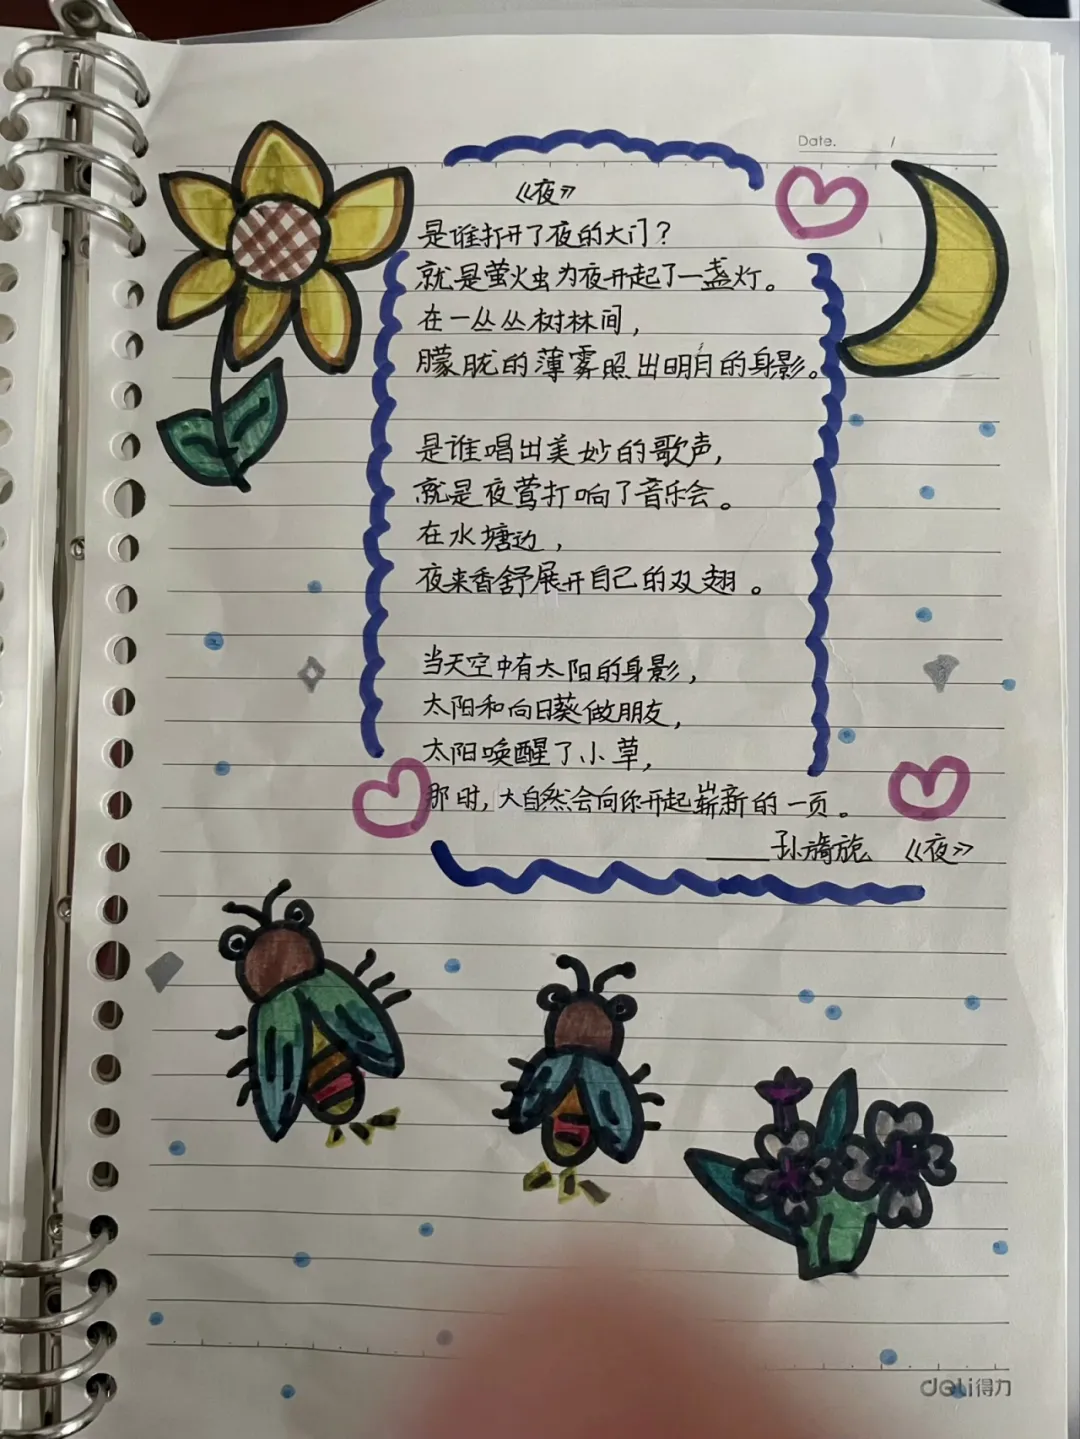 Date. /
《夜》
是谁打开了夜的大门？
就是萤火虫为夜开起了一盏灯。
在一丛丛树林间，
朦胧的薄雾照出明月的身影。
是谁唱出美妙的歌声，
就是夜莺打响了音乐会。
在水塘边，
夜来香舒展开自己的双翅。
当天空中有太阳的身影，
太阳和向日葵做朋友，
太阳唤醒了小草，
那时，大自然会向你开起崭新的一页。
——孙旖旎 《夜》
deli得力